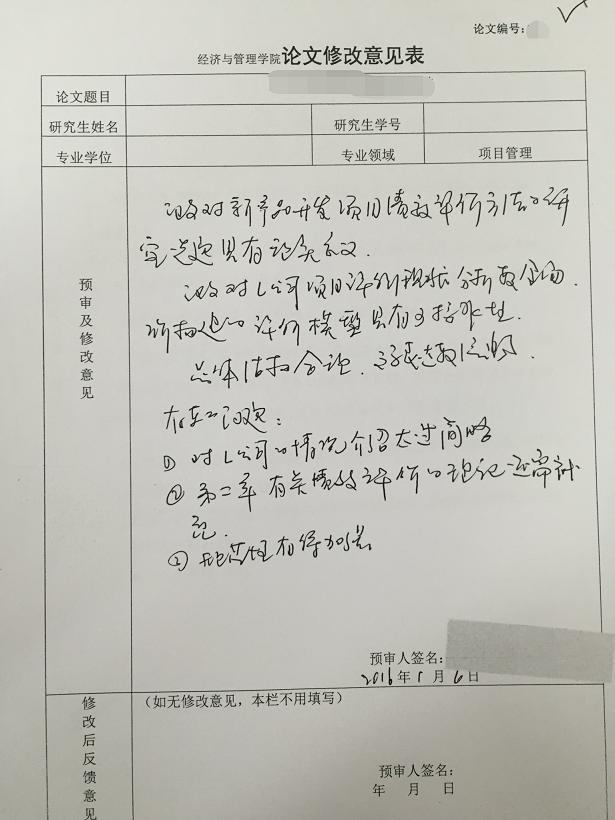 论文编号:
经济与管理学院论文修改意见表
论文题目
研究生姓名
研究生学号
专业学位
专业领域
项目管理
预审及修改意见
对新产品开发项目绩效评价方法的研
究选题具有现实意义.
对L公司项目评价现状分析较全面.
所构建的评价模型具有可操作性.
总体结构合理.
存在的问题:
① 对L公司的情况介绍太过简略
② 第二章有关绩效评价的理论还需补
充.
③ 规范性有待加强
预审人签名:
2016年1月6日
修改后反馈意见
(如无修改意见,本栏不用填写)
预审人签名:
年 月 日